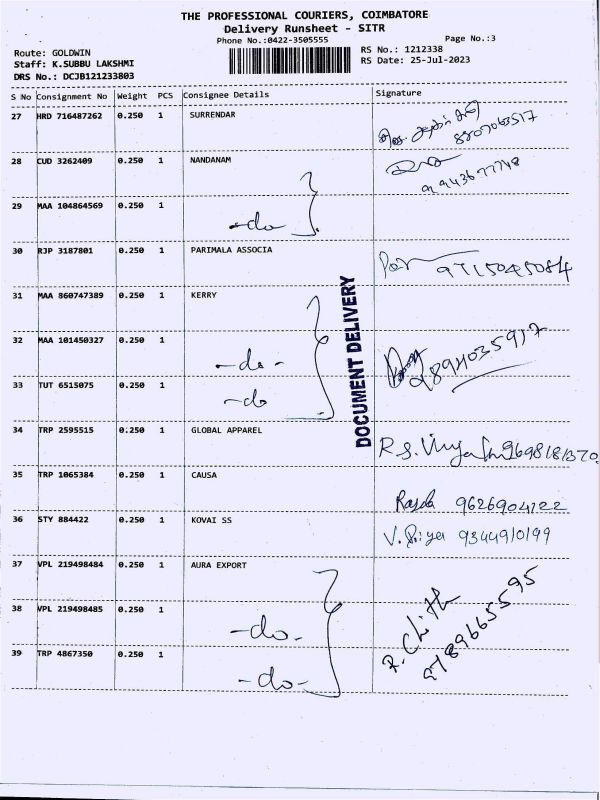 THE PROFESSIONAL COURIERS, COIMBATORE
Delivery Runsheet - SITR
Phone No.:0422-3505555
Page No.:3
Route: GOLDWIN
Staff: K.SUBBU LAKSHMI
DRS No.: DCJB121233803
RS No.: 1212338
RS Date: 25-Jul-2023
S No Consignment No Weight PCS Consignee Details Signature
27 HRD 716487262 0.250 1 SURRENDAR
28 CUD 3262409 0.250 1 NANDANAM
29 MAA 104864569 0.250 1 -do
30 RJP 3187801 0.250 1 PARIMALA ASSOCIA
31 MAA 860747389 0.250 1 KERRY
32 MAA 101450327 0.250 1 -do-
33 TUT 6515075 0.250 1 -do
34 TRP 2595515 0.250 1 GLOBAL APPAREL
35 TRP 1065384 0.250 1 CAUSA 9626904122
36 STY 884422 0.250 1 KOVAI SS V. Priya 9344910199
37 VPL 219498484 0.250 1 AURA EXPORT
38 VPL 219498485 0.250 1 -do-
39 TRP 4867350 0.250 1 -do-
DOCUMENT DELIVERY